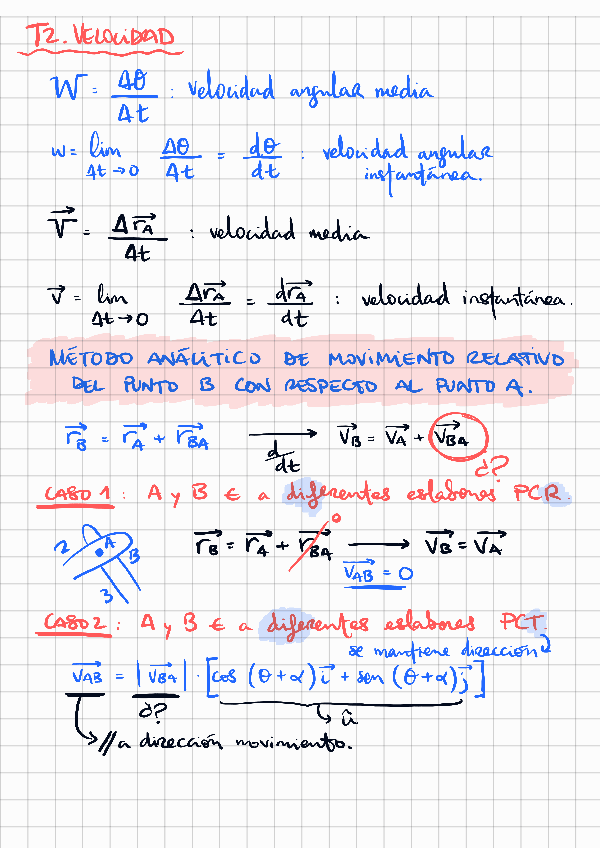 T2. VELOCIDAD
W = Δθ/Δt : velocidad angular media
w = lim Δt→0 Δθ/Δt = dθ/dt : velocidad angular instantánea.
V⃗ = Δr⃗A/Δt : velocidad media
v⃗ = lim Δt→0 Δr⃗A/Δt = dr⃗A/dt : velocidad instantánea.
MÉTODO ANÁLITICO DE MOVIMIENTO RELATIVO
DEL PUNTO B CON RESPECTO AL PUNTO A.
r⃗B = r⃗A + r⃗BA → d/dt V⃗B = V⃗A + V⃗BA
¿?
CASO 1 : A y B ∈ a diferentes eslabones PCR.
2 A B 3
r⃗B = r⃗A + r⃗BA 0 → V⃗B = V⃗A
V⃗AB = 0
CASO 2 : A y B ∈ a diferentes eslabones PCT.
se mantiene dirección
V⃗AB = |V⃗BA| · [cos (θ+α) i⃗ + sen (θ+α) j⃗]
¿? û
// a dirección movimiento.